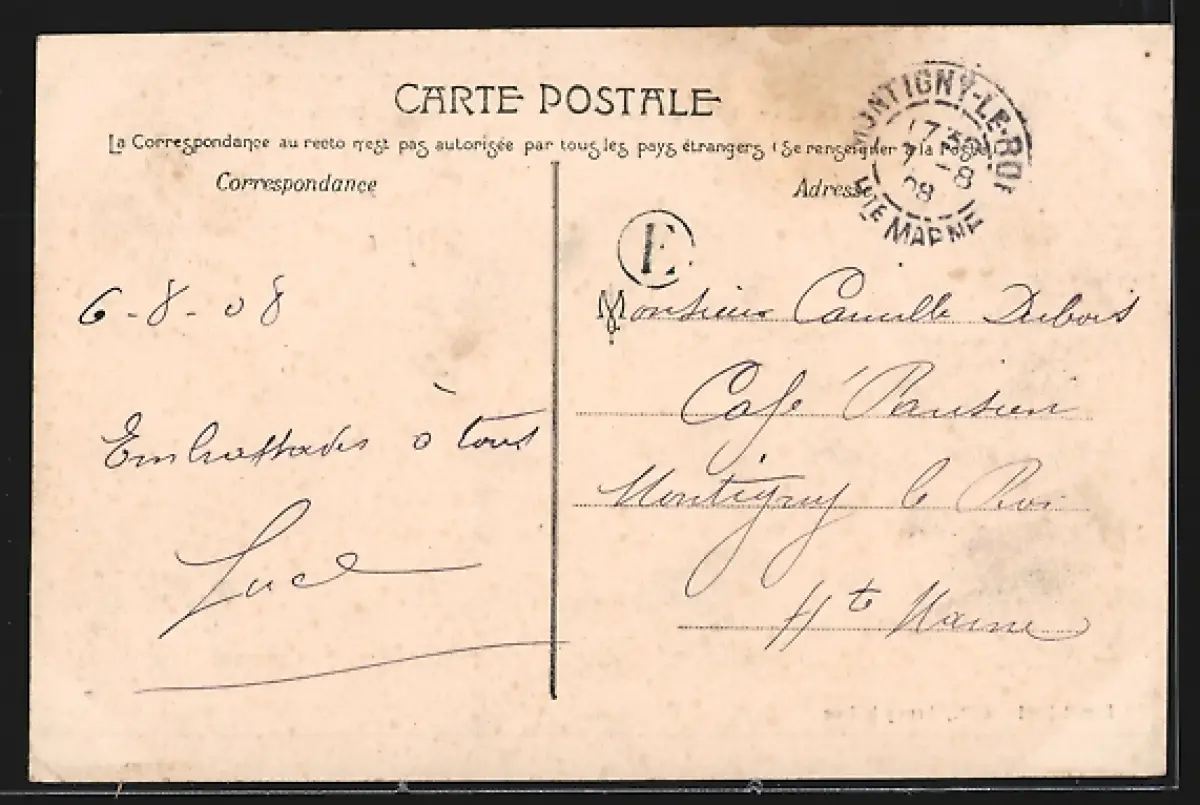 CARTE POSTALE
La Correspondance au recto n'est pas autorisée par tous les pays étrangers (Se renseigner à la Poste)
Correspondance
Adresse
MONTIGNY-LE-ROI
17 30
7 -8
08
HTE MARNE
E
6-8-08
Embrassades à tous
Luce
Monsieur Camille Dubois
Café Parisien
Montigny le Roi
Hte Marne